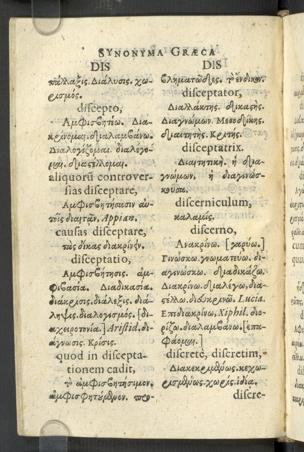 SYNONYMA GRÆCA
DIS
DIS
πάλλαξις. Διάλυσις. χω-
ρισμός.
discepto,
Ἀμφισβητέω. Δια-
κρίνομαι. διαλαμβάνω.
Διαλογίζομαι. διαλέγο-
μαι. διαστέλλομαι.
aliquorū controver-
sias disceptare,
αὐτοῖς διαιτᾶν. Appian.
causas disceptare,
τὰς δίκας διακρίνειν.
disceptatio,
Ἀμφισβήτησις. ἀμ-
φιβασία. Διαδικασία.
διάκρισις. διάλεξις. διά-
ληψις. διαλογισμός. [δι-
αχειροτονία.] Aristid. δι-
άγνωσις. Κρίσις.
quod in discepta-
tionem cadit,
τὸ ἀμφισβητήσιμον.
ἀμφισβητούμενον.
disceptator,
Διαλλάκτης. δικαστής.
Διαγνώμων. Μεσοδίκης.
διαιτητής. Κριτής.
disceptatrix.
Διαιτητική. ἡ δια-
γνώμων. ἡ διαγινώ-
σκουσα.
discerniculum,
καλαμίς.
discerno,
Ἀνακρίνω. [γαρύω.]
Γινώσκω. γνωματεύω. δι-
αγινώσκω. διαδικάζω.
Διακρίνω. διαλέγω. δια-
Lucia.
Ἐπιδιακρίνω, Xiphil. διο-
ρίζω. διαλαμβάνω. [ἐπι-
φάσκομαι.]
discretè, discretim,
Διακεκριμένως. κεχω-
ρισμένως. χωρίς. ἰδίᾳ.
discre-